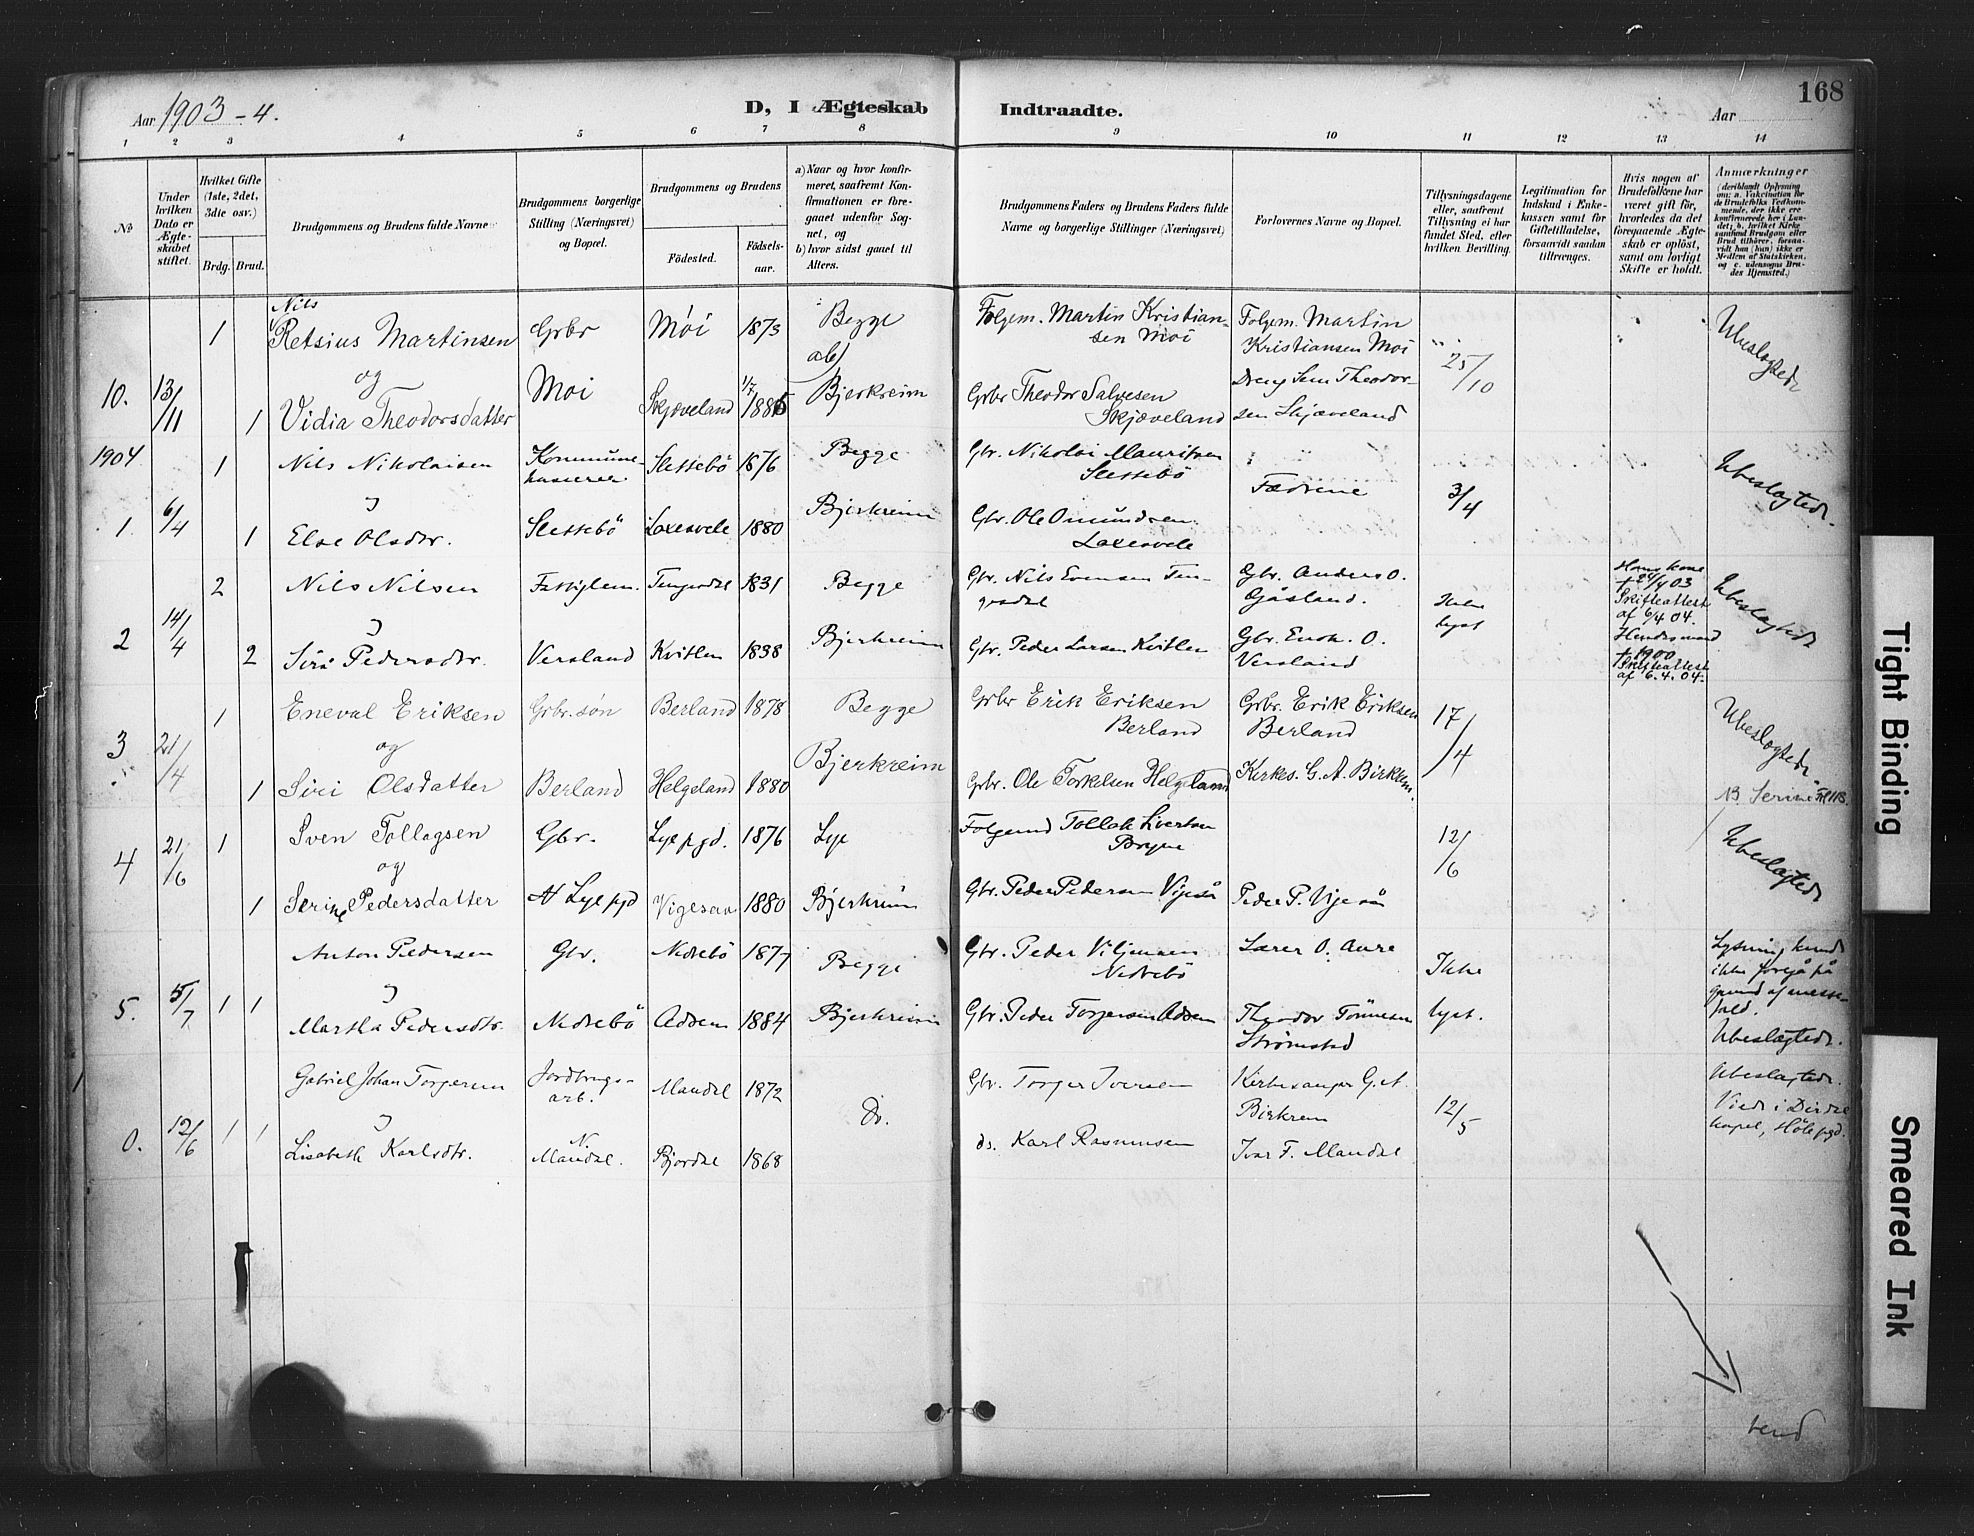 168
Aar 1903-4.
D, I Ægteskab Indtraadte.
Aar
1 2 3 4 5 6 7 8 9 10 11 12 13 14
No
Under hvilken Dato er Ægteskabet stiftet.
Hvilket Gifte (1ste, 2det, 3die osv.)
Brdg. Brud.
Brudgommens og Brudens fulde Navne
Brudgommens borgerlige Stilling (Næringsvei) og Bopæl.
Brudgommens og Brudens
Födested.
Födselsaar.
a) Naar og hvor konfirmeret, saafremt Konfirmationen er foregaaet udenfor Sognet, og
b) hvor sidst gaaet til Alters.
Brudgommens Faders og Brudens Faders fulde Navne og borgerlige Stillinger (Næringsvei)
Forlovernes Navne og Bopæl.
Tillysningsdagene eller, saafremt Tillysning ei har fundet Sted, efter hvilken Bevilling.
Legitimation for Indskud i Enkekassen samt for Giftetilladelse, forsaavidt saadan tiltrænges.
Hvis nogen af Brudefolkene har været gift før, hvorledes da det foregaaende Ægteskab er opløst, samt om lovligt Skifte er holdt.
Anmærkninger
10. 13/11
1 Nils Retsius Martinsen Grbr Møi 1873 Begge Folgem. Martin Kristiansen Moi Folgem. Martin Kristiansen Moi 25/10 Ubeslægtede
og Moi
1 Vidia Theodorsdatter Skjæveland 1/7 1885 Bjerkreim Grbr Theodor Salvesen Skjæveland Dreng Sem Theodorsen Skjæveland
1904
1. 6/4
1 Nils Nikolaisen Kommunekasserer Slettebö 1876 Begge Gbr. Nikolai Mauritsen Slettebö Fædrene 3/4 Ubeslægtede.
1 Else Olsdtr. Slettebö Laxesvele 1880 Bjerkreim Gbr. Ole Omundsen Laxesvele
2 14/4
2 Nils Nilsen Fattiglem. Tengesdal 1831 Begge Gbr. Nils Evensen Tengesdal Gbr. Anders O. Gåsland. Ubeslægtede
lyst
Hans kone
Skifteattest af 6/4 04.
2 Siri Pedersdtr. Versland Kvitlen 1838 Bjerkreim Gbr. Peder Larsen Kvitlen Gbr. Enok. O. Versland
Hendes mand + 1900 Skifteattest af 6.4.04.
3 21/4
1 Eneval Eriksen Grbr. søn Berland 1878 Begge Grbr Erik Eriksen Berland Grbr. Erik Eriksen Berland 17/4 Ubeslægtede.
og
1 Siri Olsdatter Berland Helgeland 1880 Bjerkreim Grbr. Ole Torkelsen Helgeland Kirkes. G. A. Birkrem.
NB. Serine
4 21/6
1 Sven Tollagsen Gbr. Lye pgd. 1876 Lye Folgemd Tollak Sivertsen Bryne 12/6 Ubeslægtede
og
1 Serine Pedersdatter Lye pgd Vigesaa 1880 Bjerkreim Gbr. Peder Pedersen Vigeså Peder P. Vigeså
5. 5/7
1 1 Anton Pedersen Gbr. Nedrebö 1877 Begge Gbr. Peder Viljemsen Nedrebö Lærer O. Aure Ikke lyst.
Martha Pedersdtr. Nedrebö Adsem 1884 Bjerkreim Gbr. Peder Torgersen Adsem Theodor Tönnesen Strömstad
Lysning kunde ikke foregå på grund af messefald. Ubeslægtede.
0. 12/6
1 1 Gabriel Johan Torgersen Jordbrugsarb. Maudal 1872 Do. Gbr. Torger Iversen Kirkesanger G. A. Birkrem 12/5 Ubeslægtede.
Lisabeth Karlsdtr. N Maudal. Bjordal 1868 do. Karl Rasmussen Ivar F. Maudal
Viede i Dirdal kapel, Høle pgd.
vend
Tight Binding
Smeared Ink